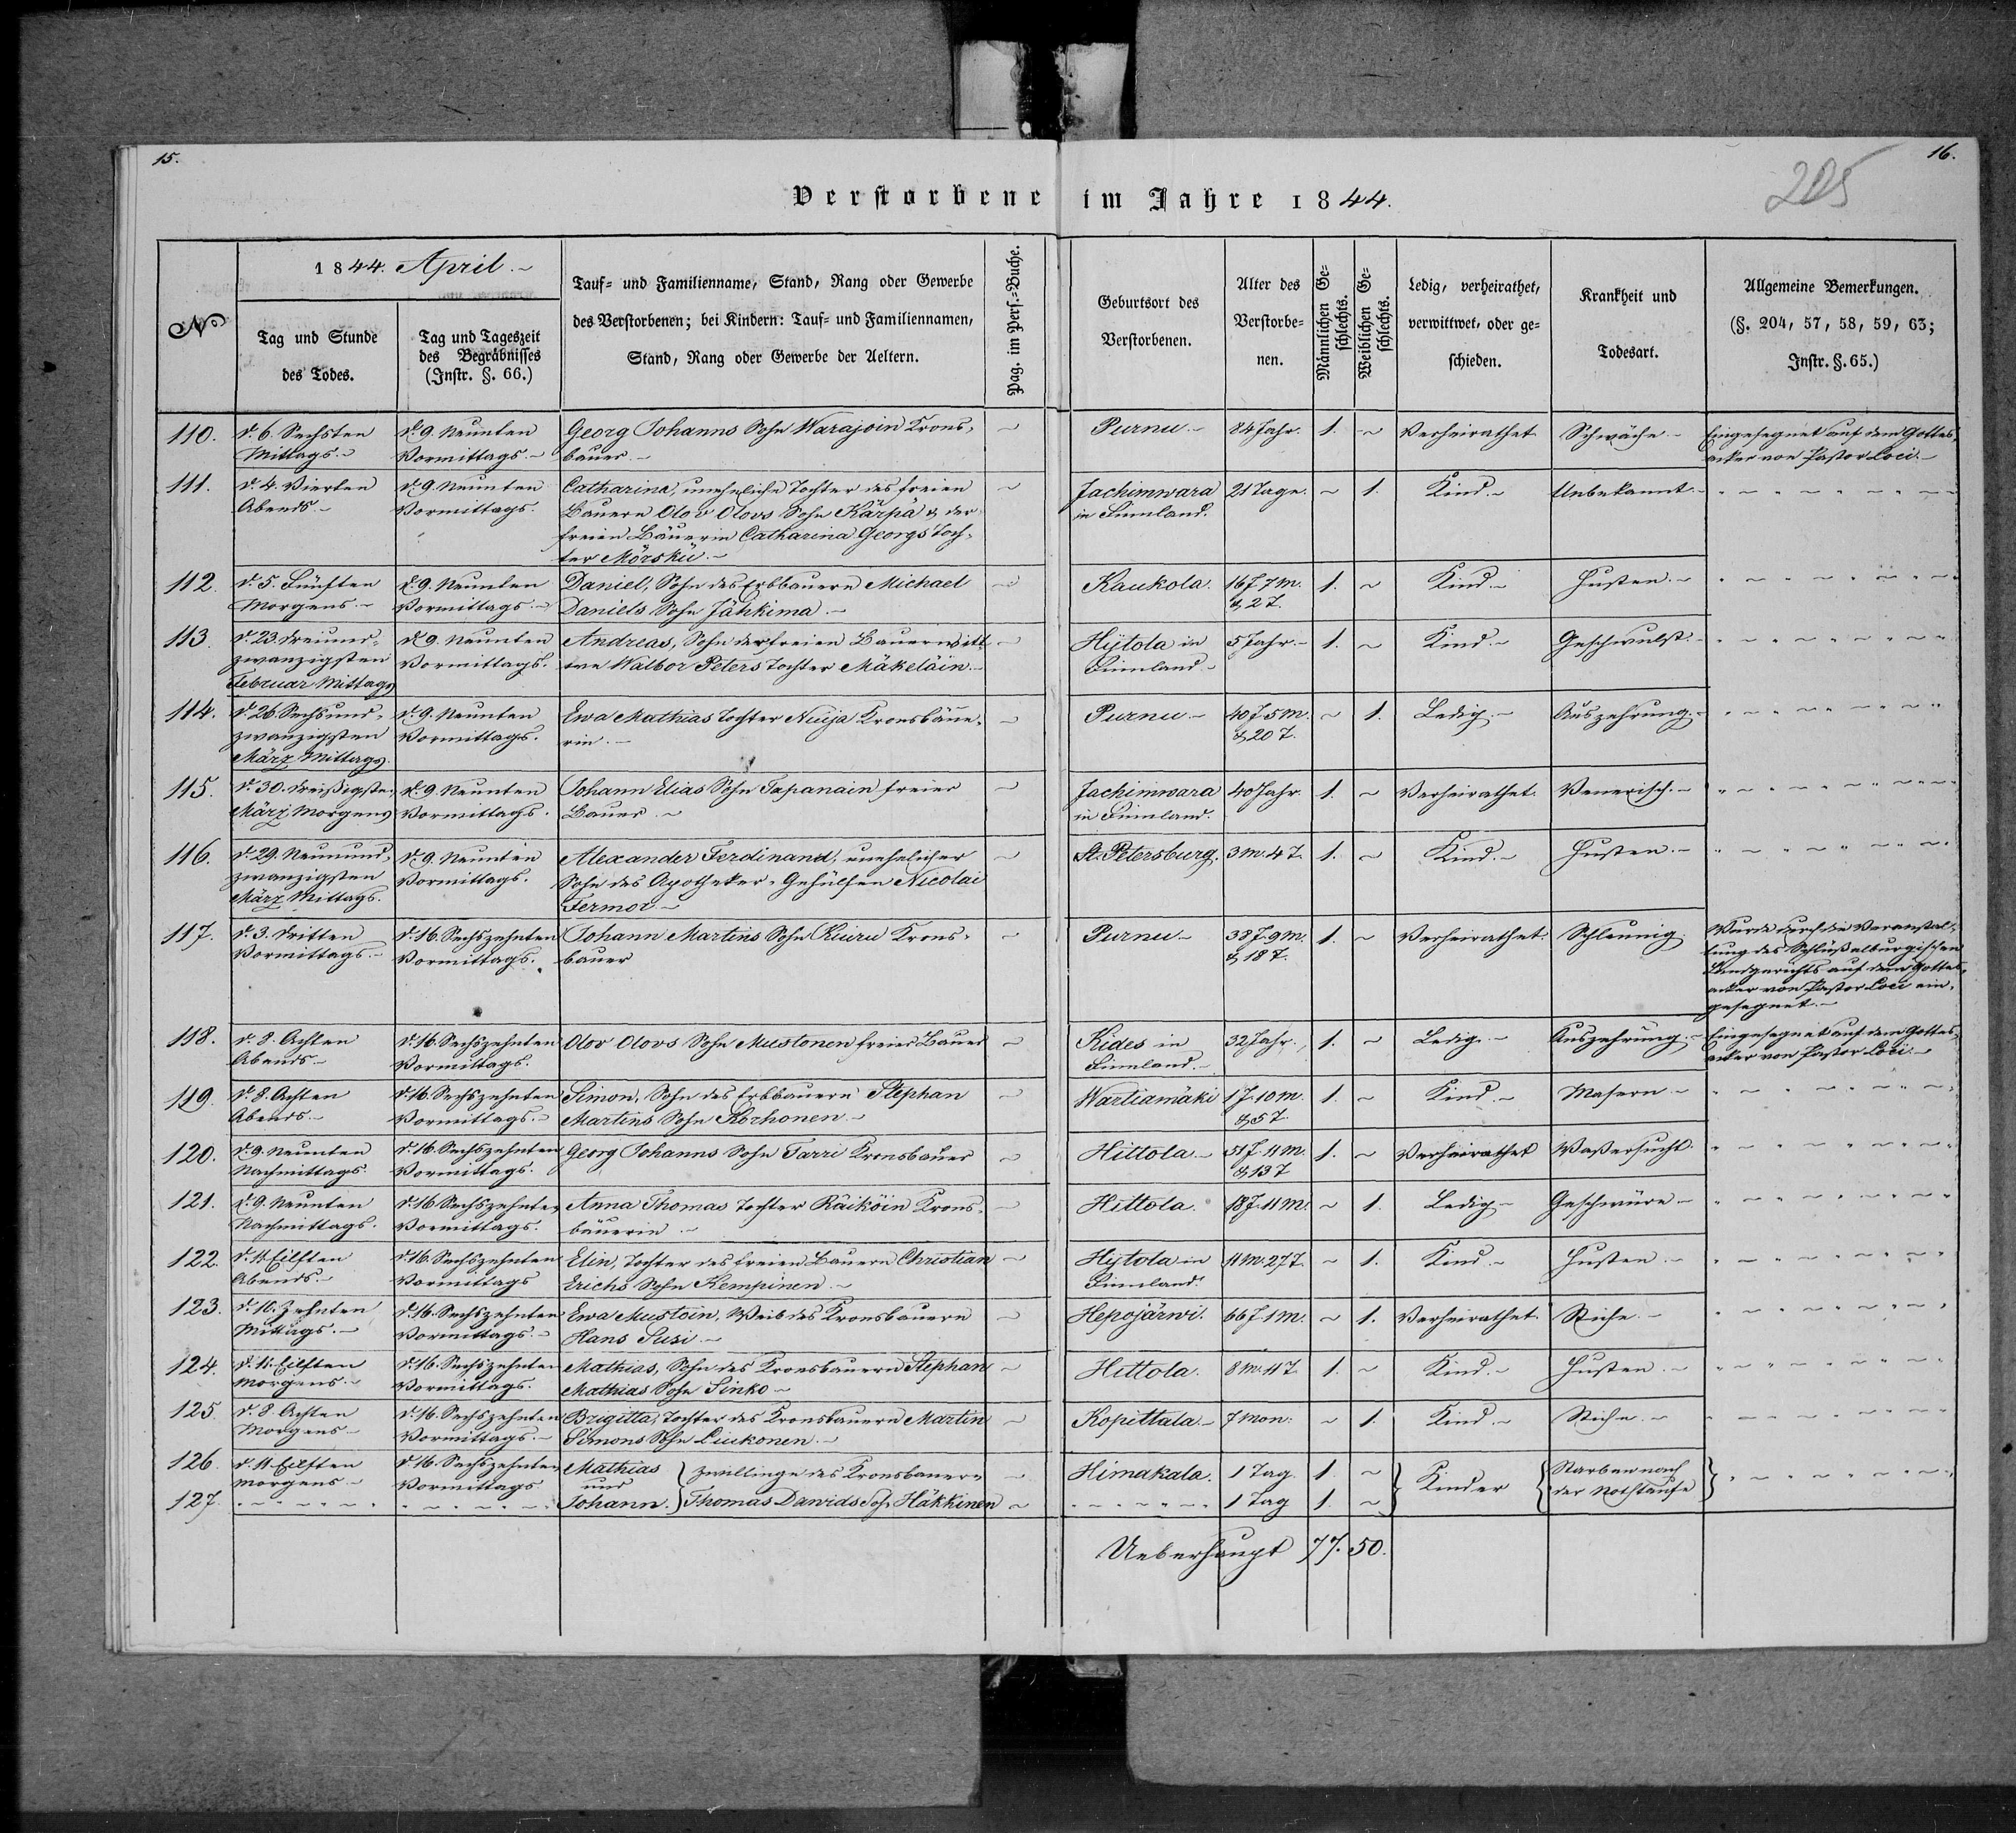 15.
16.
205
Verstorbene im Jahre 1844.
No
1844. April.
Tag und Stunde
des Todes.
Tag und Tageszeit
des Begräbnisses
(Instr. §. 66.)
Tauf- und Familienname, Stand, Rang oder Gewerbe
des Verstorbenen; bei Kindern: Tauf- und Familiennamen,
Stand, Rang oder Gewerbe der Aeltern.
Pag. im Pers.-Buche.
Geburtsort des
Verstorbenen.
Alter des
Verstorbe-
nen.
Männlichen Ge-
schlechts.
Weiblichen Ge-
schlechts.
Ledig, verheirathet,
verwittwet, oder ge-
schieden.
Krankheit und
Todesart.
Allgemeine Bemerkungen.
(§. 204, 57, 58, 59, 63;
Instr. §. 65.)
110.
d. 6. Sechsten
Mittags.
d. 9. Neunten
Vormittags.
Georg Johanns Sohn Warajoin Krons-
bauer.
Purnu. 84 Jahr. 1. Verheirathet Schwäche
Eingesegnet auf dem Gottes-
acker von Pastor Loci.
111.
d. 4. Vierten
Abends
d. 9. Neunten
Vormittags.
Catharina, uneheliche Tochter des freien
Bauern Olov Olovs Sohn Kärpä & der
freien Bäuerin Catharina Georgs Toch-
ter Mörskü.
Jachimwara
in Finnland.
21 Tage. 1. Kind. Unbekannt.
112.
d. 5. Fünften
Morgens.
d. 9. Neunten
Vormittags.
Daniel, Sohn des Erbbauern Michael
Daniels Sohn Jähkima.
Kaukola. 16 J. 7 M.
& 2 T.
1. Kind. Husten.
113.
d. 23. Dreiund-
zwanzigsten
Februar Mittags
d. 9. Neunten
Vormittags.
Andreas, Sohn der freien Bauernwitt-
we Walbor Peters Tochter Mäkeläin.
Hijtola in
Finnland
5 Jahr. 1. Kind. Geschwulst.
114.
d. 26. Sechsund-
zwanzigsten
März Mittags.
d. 9. Neunten
Vormittags.
Ewa Mathias Tochter Nuija Kronsbäue-
rin.
Purnu 40 J. 5 M.
& 20 T.
1. Ledig. Auszehrung.
115.
d. 30. Dreißigsten
März Morgens
d. 9. Neunten
Vormittags.
Johann Elias Sohn Tapanain freier
Bauer.
Jachimwara
in Finnland.
40 Jahr. 1. Verheirathet. Venerisch.
116.
d. 29. Neunund-
zwanzigsten
März Mittags.
d. 9. Neunten
Vormittags.
Alexander Ferdinand, unehelicher
Sohn des Apotheker-Gehülfen Nicolai
Fermor.
St. Petersburg. 3 M. 4 T. 1. Kind. Husten.
117.
d. 3. Dritten
Vormittags.
d. 16. Sechszehnten
Vormittags.
Johann Martins Sohn Kiuru Krons-
bauer
Purnu 38 J. 9 M.
& 18 T.
1. Verheirathet. Schleunig.
Wurde durch die Veranstal-
tung des Schlüsselburgischen
Landgerichts auf dem Gottes-
acker von Pastor Loci ein-
gesegnet.
118.
d. 8. Achten
Abends
d. 16. Sechszehnten
Vormittags.
Olov Olovs Sohn Mustonen freier Bauer
Kides in
Finnland.
32 Jahr. 1. Ledig. Auszehrung.
Eingesegnet auf dem Gottes-
acker von Pastor Loci.
119.
d. 8. Achten
Abends.
d. 16. Sechszehnten
Vormittags.
Simon, Sohn des Erbbauern Stephan
Martins Sohn Korhonen.
Wartiamäki 1 J. 10 M.
& 5 T.
1. Kind. Masern
120.
d. 9. Neunten
Nachmittags
d. 16. Sechszehnten
Vormittags.
Georg Johanns Sohn Tarri Kronsbauer
Hittola 51 J. 11 M.
& 13 T
1. Verheirathet Waßersucht.
121.
d. 9. Neunten
Nachmittags.
d. 16 Sechszehnten
Vormittags.
Anna Thomas Tochter Räiköin Krons-
bäuerin.
Hittola. 18 J. 11 M. 1. Ledig Geschwüre
122.
d. 11. Eilften
Abends.
d. 16. Sechszehnten
Vormittags
Elin, Tochter des freien Bauern Christian
Erichs Sohn Kempinen
Hijtola in
Finnland.
11 M. 27 T. 1. Kind. Husten.
123.
d. 10. Zehnten
Mittags.
d. 16. Sechszehnten
Vormittags.
Ewa Mustoin, Weib des Kronsbauern
Hans Susi.
Hepojärwi. 66 J. 1 M. 1. Verheirathet. Stiche.
124.
d. 11. Eilften
Morgens.
d. 16. Sechszehnten
Vormittags.
Mathias, Sohn des Kronsbauern Stephan
Mathias Sohn Sinko
Hittola. 8 M. 4 T. 1. Kind. Husten.
125.
d. 8. Achten
Morgens
d. 16. Sechszehnten
Vormittags.
Brigitta, Tochter des Kronsbauern Martin
Simons Sohn Liukonen.
Kopittala 7 Mon. 1. Kind. Stiche.
126.
d. 11. Eilften
Morgens
d. 16. Sechszehnten
Vormittags
Mathias
und
Zwillinge des Kronsbauern
Himakala. 1 Tag. 1.
Kinder
Starben nach
der Nothtaufe
127.
Johann. Thomas Dawids Sohn Häkkinen
1 Tag 1.
Ueberhaupt 77. 50.